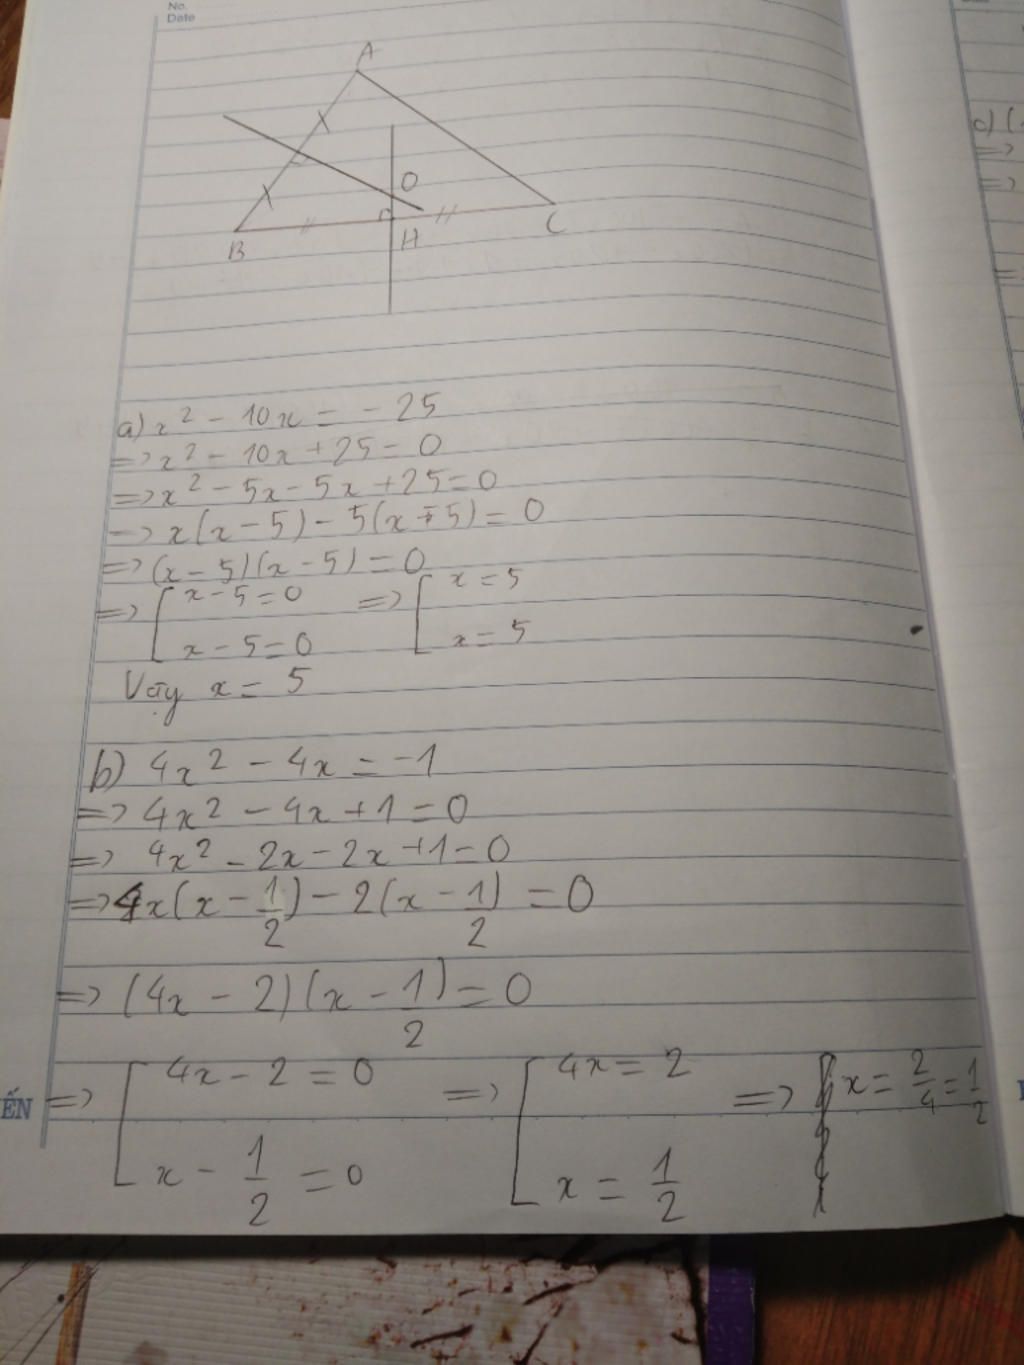 No.
Date
A
O
B
H
C
a) x² - 10x = - 25
=> x² - 10x + 25 = 0
=> x² - 5x - 5x + 25 = 0
=> x(x - 5) - 5(x - 5) = 0
=> (x - 5)(x - 5) = 0
=> [ x - 5 = 0 => [ x = 5
x - 5 = 0 x = 5
Vậy x = 5
b) 4x² - 4x = -1
=> 4x² - 4x + 1 = 0
=> 4x² - 2x - 2x + 1 = 0
=> 4x(x - 1/2) - 2(x - 1/2) = 0
=> (4x - 2)(x - 1/2) = 0
=> [ 4x - 2 = 0 => [ 4x = 2 => x = 2/4 = 1/2
x - 1/2 = 0 x = 1/2
ẾN
c) (
=>
=>
=